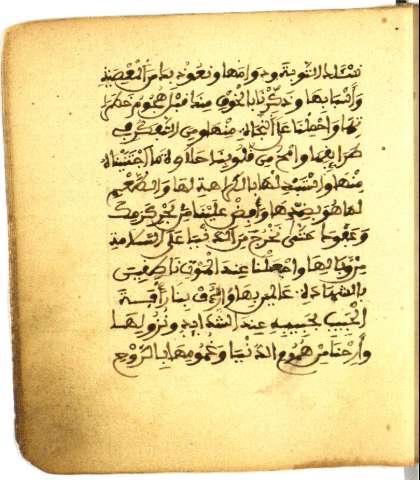 نسئلك التوبة ودوامها ونعوذ بك من المعصية
وأسبابها وذكرنا بالخوف منك قبل هجوم خطرا
تها واحملنا على النجاة منها ومن التفكر في
طرايقها وامح من قلوبنا حلاوة ما اجتنيناه
منها واستبدلها بالكراهة لها والطعم
لما هو بضدها وأفض علينا من بحر كرمك
وعفوك حتى نخرج من الدنيا على السلامة
من وبالها واجعلنا عند الموت ناطقين
بالشهادة عالمين بها وارأف بنا رأفة
الحبيب بحبيبه عند الشدايد ونزولها
وأرحنا من هموم الدنيا وغمومها بالروح